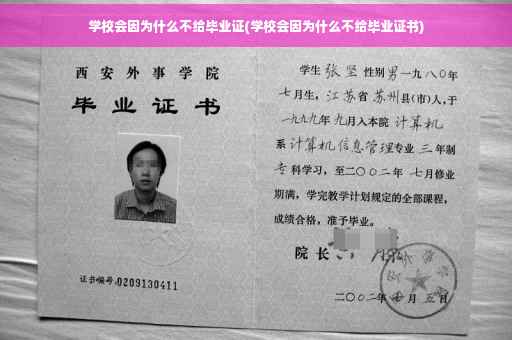 学校会因为什么不给毕业证(学校会因为什么不给毕业证书)
西安外事学院
毕业证书
证书编号:0209130411
学生 张坚 性别 男 一九八〇年
七月生，江苏省 苏州县(市)人,于
一九九九年 九月入本院 计算机
系 计算机信息管理专业 三 年制
专 科学习，至二〇〇二年 七月修业
期满，学完教学计划规定的全部课程，
成绩合格，准予毕业。
院长
二〇〇二年 月 五日